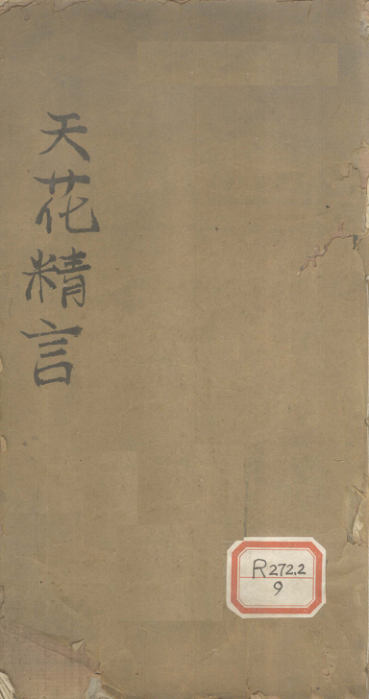 天花精言
R272.2
9